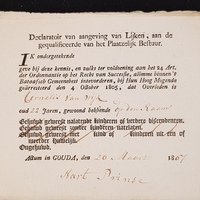 Declaratoir van aangeving van Lijken, aan de
gequalificeerde van het Plaatzelijk Bestuur.
IK ondergetekende
geve bij deze kennis, en zulks ter voldoening aan het 24 Art.
der Ordonnantie op het Recht van Successie, alomme binnen 't
Bataafsch Gemeenebest intevorderen, bij Hun Hoog Mogende
geärresteerd den 4 October 1805, dat Overleden is
Cornelis Van Dyk
oud 22 Jaren, gewoond hebbende op den
Gehuwd geweest nalatende kinderen of verdere descendenten.
Gehuwd geweest zonder kinderen-natelaten.
Gehuwd geweest met kind of kinderen uit een of
meerder huwelijk
Ongehuwd.
Actum in GOUDA, den 20 Maart 1807
Aart Prins